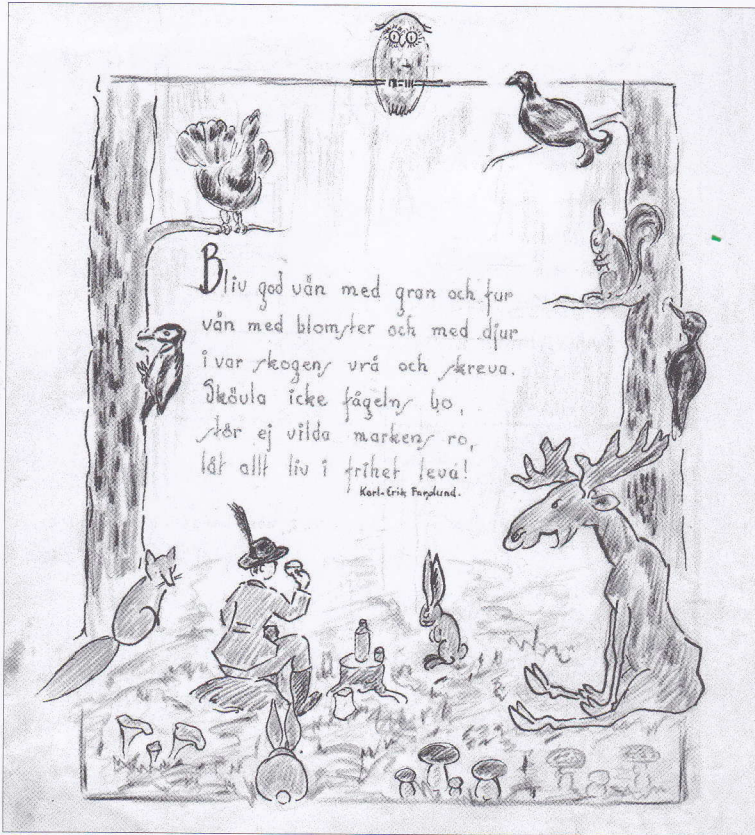 Bliv god vän med gran och fur
vän med blomster och med djur
i var skogens vrå och skreva.
Skövla icke fågelns bo,
stör ej vilda markens ro,
låt allt liv i frihet leva!
Karl-Erik Forslund.